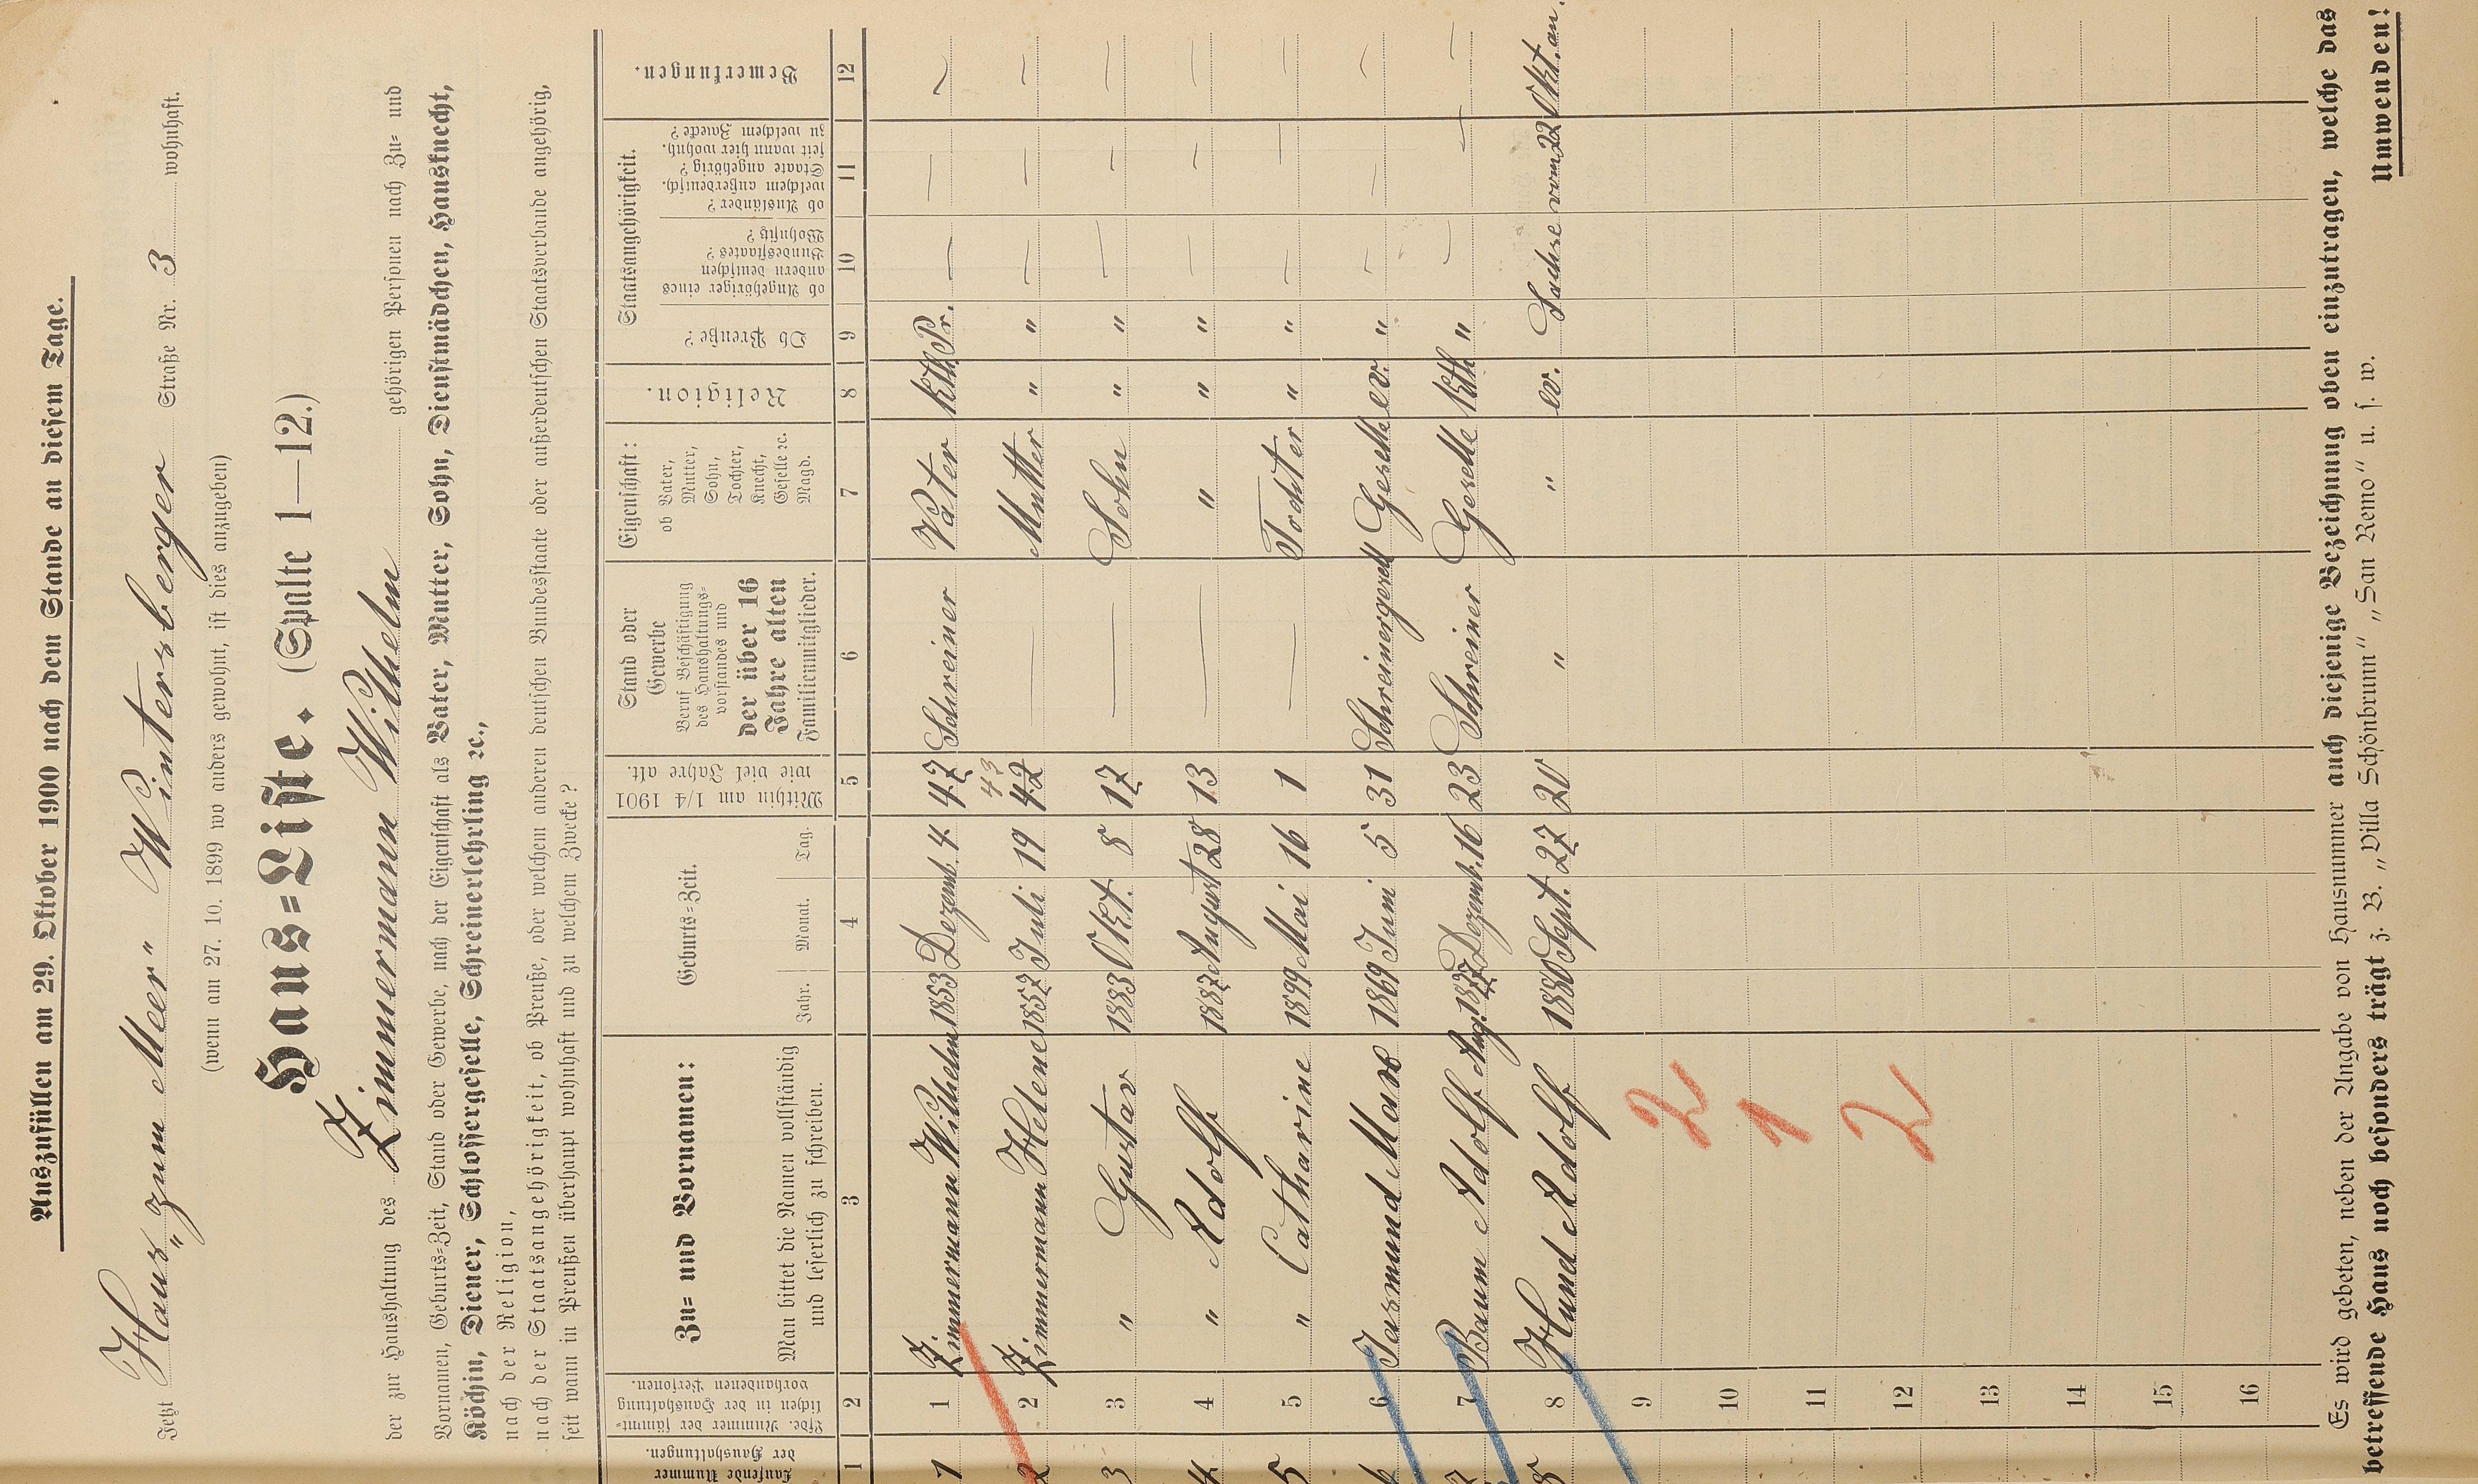 Auszufüllen am 29. Oktober 1900 nach dem Stande an diesem Tage.
Jetzt Haus „zum Meer“ Wintersberger Straße Nr. 3 wohnhaft.
(wenn am 27. 10. 1899 wo anders gewohnt, ist dies anzugeben)
Haus=Liste. (Spalte 1—12.)
der zur Haushaltung des Zimmermann Wilhelm gehörigen Personen nach Zu= und
Vornamen, Geburts=Zeit, Stand oder Gewerbe, nach der Eigenschaft als Vater, Mutter, Sohn, Dienstmädchen, Hausknecht,
Köchin, Diener, Schlossergeselle, Schreinerlehrling ꝛc.,
nach der Religion,
nach der Staatsangehörigkeit, ob Preuße, oder welchem anderen deutschen Bundesstaate oder außerdeutschen Staatsverbande angehörig,
seit wann in Preußen überhaupt wohnhaft und zu welchem Zwecke?
Laufende Nummer der Haushaltungen.
Lfde. Nummer der sämmt=lichen in der Haushaltung vorhandenen Personen.
Zu= und Vornamen:
Man bittet die Namen vollständig
und leserlich zu schreiben.
Geburts=Zeit.
Jahr. Monat. Tag.
Mithin am 1/4 1901 wie viel Jahre alt.
Stand oder
Gewerbe
Beruf Beschäftigung
des Haushaltungs=
vorstandes und
der über 16
Jahre alten
Familienmitglieder.
Eigenschaft:
ob Vater,
Mutter,
Sohn,
Tochter,
Knecht,
Geselle ꝛc.
Magd.
Religion.
Staatsangehörigkeit.
Ob Preuße?
ob Angehöriger eines
andern deutschen
Bundesstaates?
Wohnsitz?
ob Ausländer?
welchem außerdeutsch.
Staate angehörig?
seit wann hier wohnh.
zu welchem Zwecke?
Bemerkungen.
1 2 3 4 5 6 7 8 9 10 11 12
1 1 Zimmermann Wilhelm 1853 Dezemb. 4. 47 Schreiner Vater kth. Pr. — — —
43
2 2 Zimmermann Helene 1857 Juli 19 42 — Mutter " " — — —
3 3 " Gustav 1883 Okt. 8 17 — Sohn " " — — —
4 4 " Adolf 1887 August 28 13 — " " " — — —
5 5 " Catharine 1899 Mai 16 1 — Tochter " " — — —
6 6 Jasmund Max 1869 Juni 5 31 Schreinergesell Geselle ev. " — — —
7 7 Baum Adolf Aug. 1877 Dezemb. 16 23 Schreiner Geselle kth " — — —
8 8 Hund Adolf 1880 Sept. 27 20 " " ev. Sachse vom 22 Okt. an.
9 2
10 1
11
12 2
13
14
15
16
Es wird gebeten, neben der Angabe von Hausnummer auch diejenige Bezeichnung oben einzutragen, welche das
betreffende Haus noch besonders trägt z. B. „Villa Schönbrunn“ „San Remo“ u. s. w.
Umwenden!